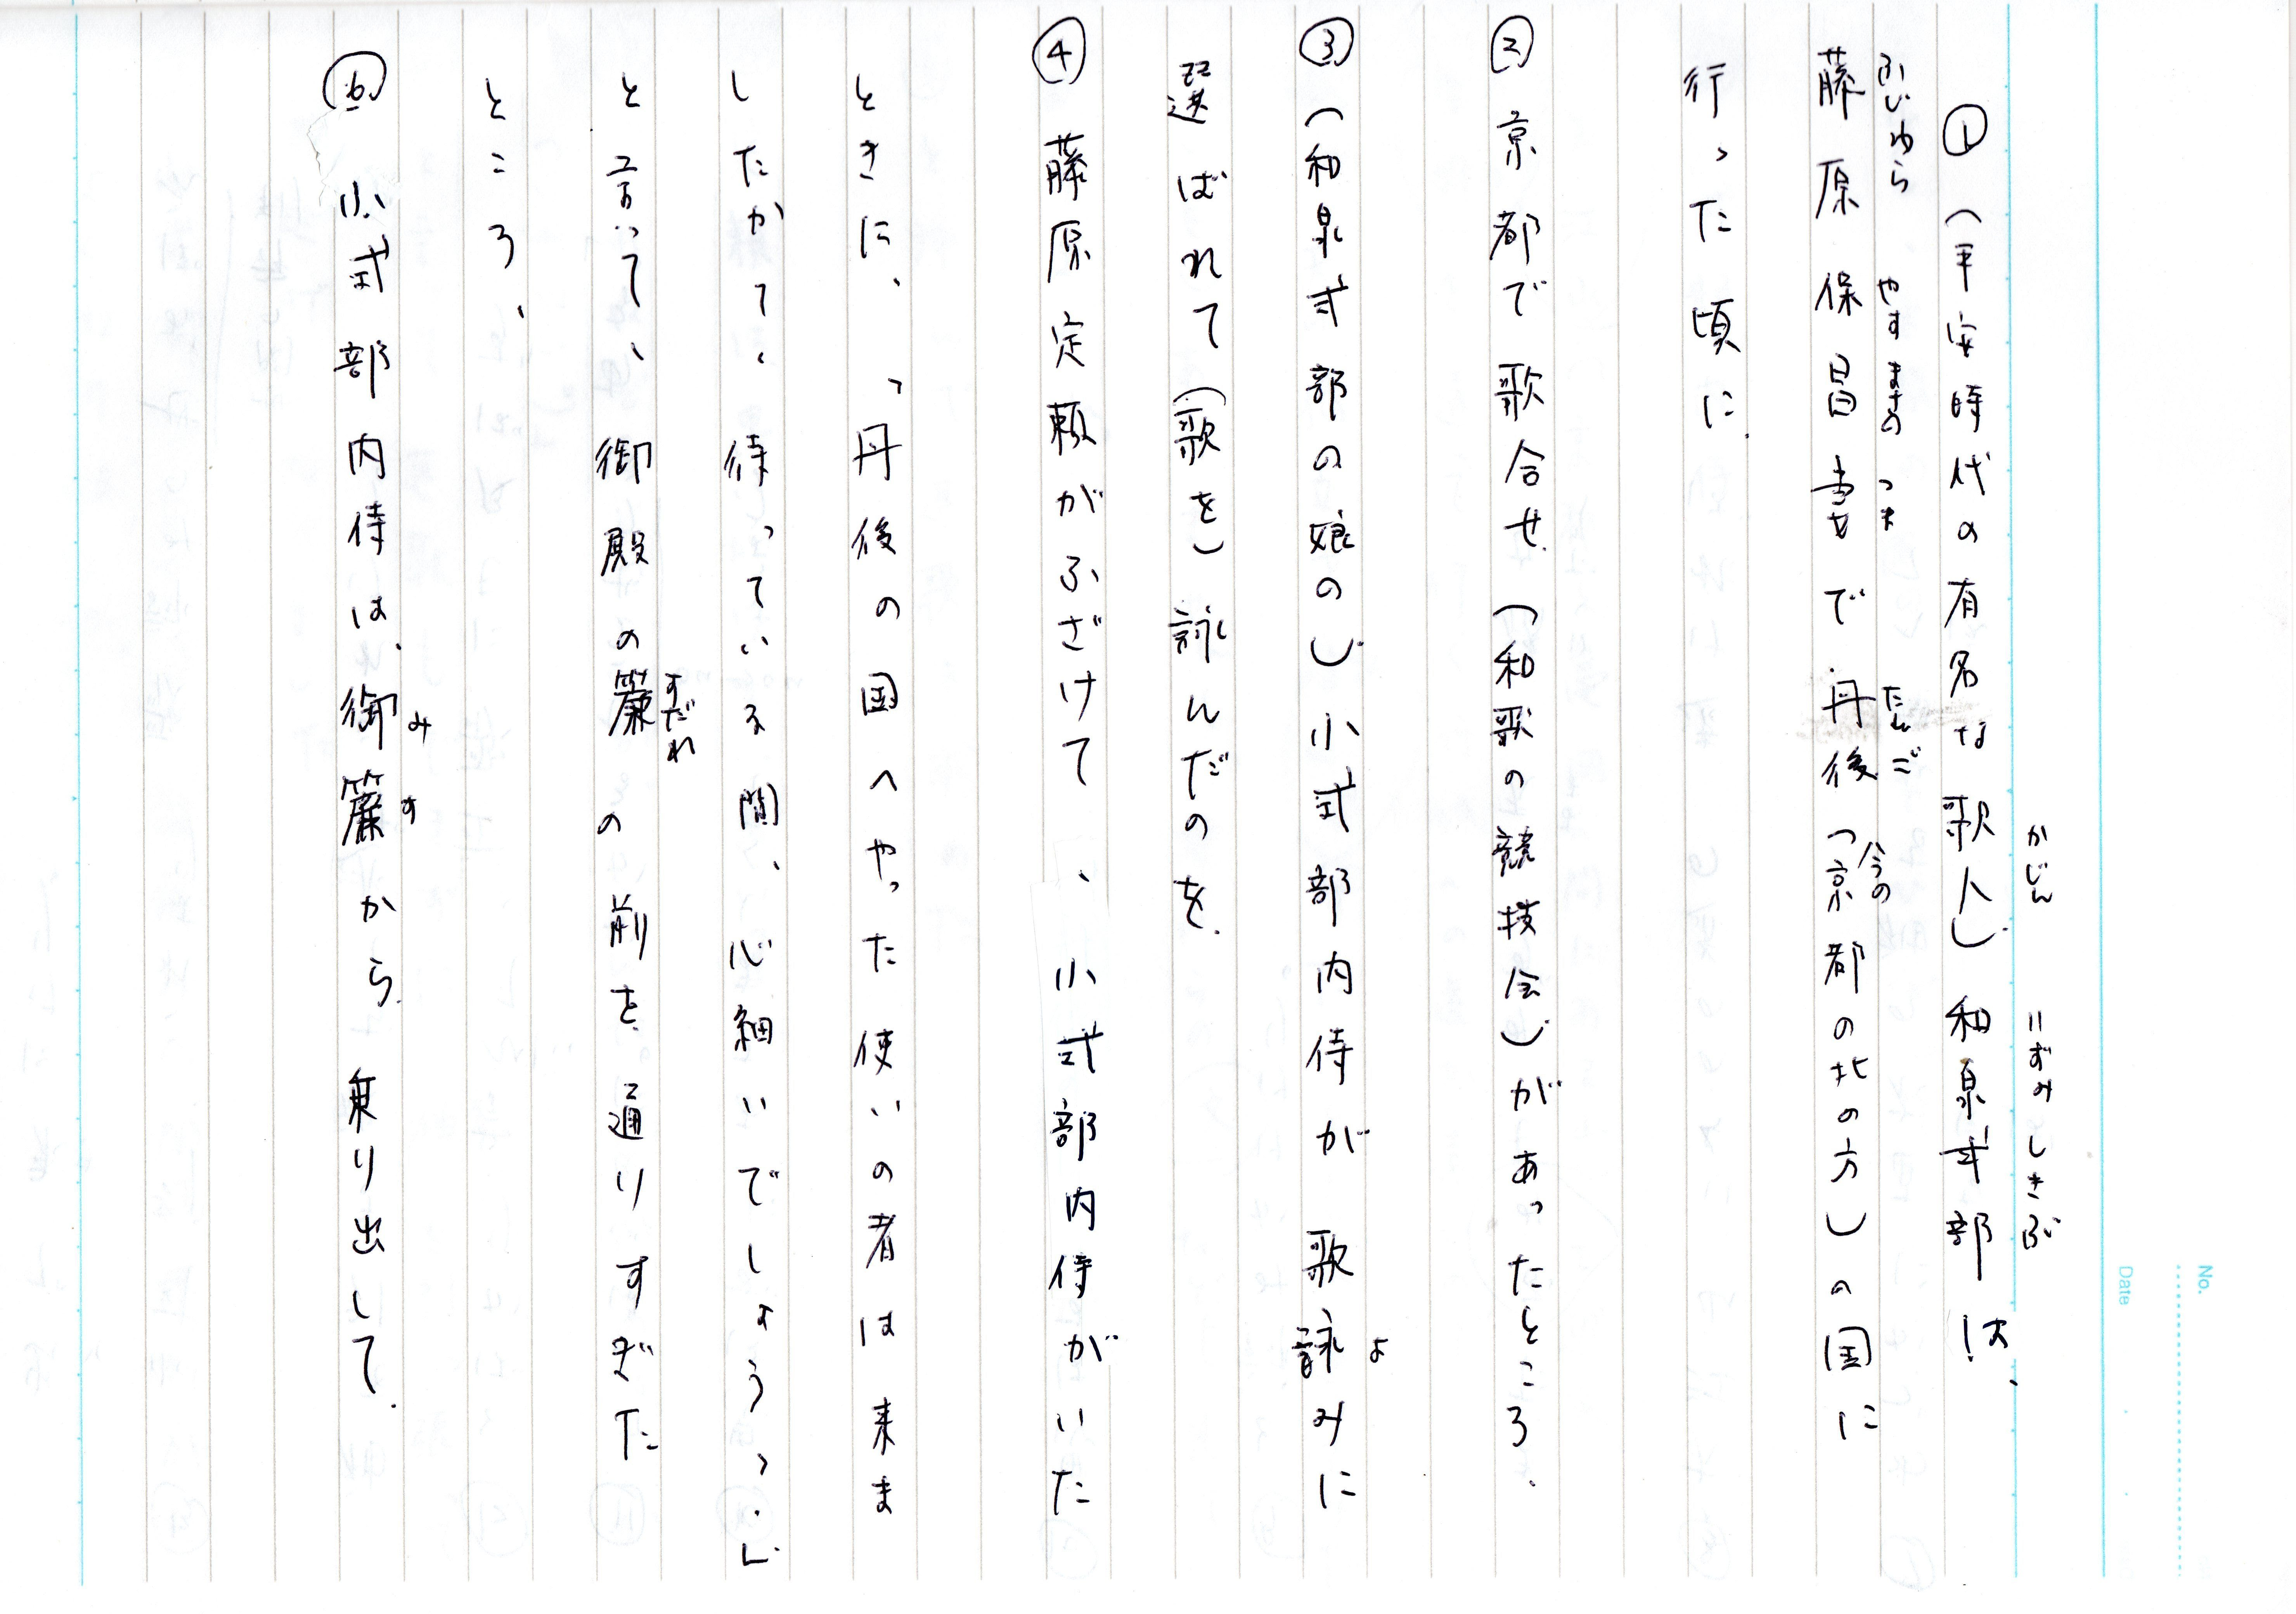 No.
Date
① (平安時代の有名な歌人) 和泉式部は、
かじん いずみしきぶ
藤原保昌妻で丹後(京都の北の方)の国に
ふじわら やすまさの つま たんご 今の
行った頃に
② 京都で歌合せ(和歌の競技会)があったところ
③ (和泉式部の娘の)小式部内侍が歌詠みに
よ
選ばれて(歌を)詠んだのを
④ 藤原定頼がふざけて、小式部内侍がいた
ときに、「丹後の国へやった使いの者は来ま
したかて、待っている間、心細いでしょう。」
と言って、御殿の簾の前を通りすぎた
すだれ
ところ、
小式部内侍は、御簾から乗り出して
みす